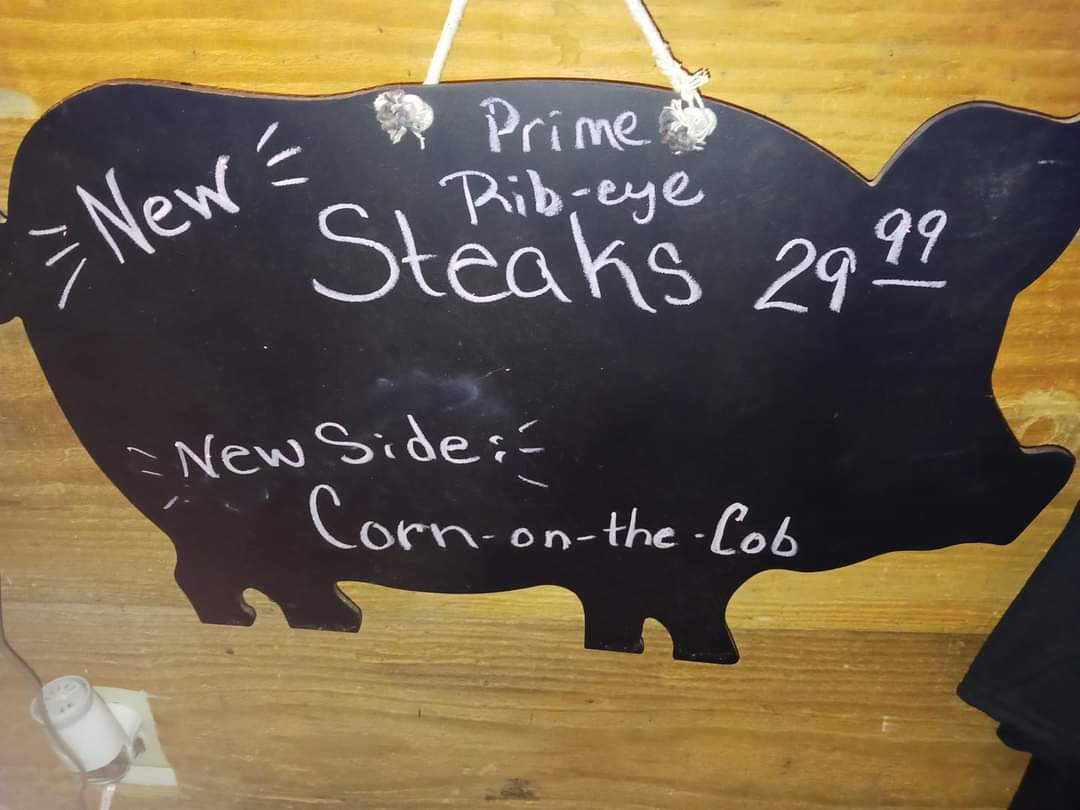 New
Prime
Rib-eye
Steaks 29 99
New Side:
Corn-on-the-Cob